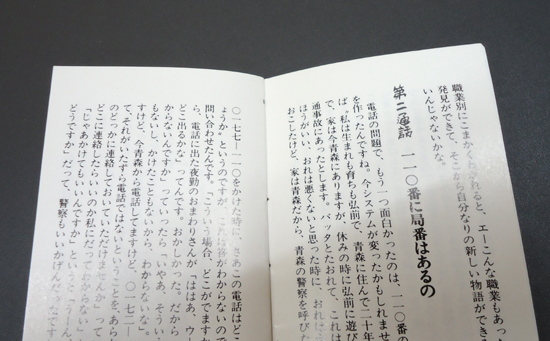 職業別にこまかく分かれると、エーこんな職業もあった
発見ができて、そこから自分なりの新しい物語ができる
いんじゃないかな。
第二電話 一一〇番に局番はあるの
電話の問題で、もう一つ面白かったのは、一一〇番の
を作ったんですね。今システムが変ったかもしれませ
ば。私は生まれも育ちも弘前で、青森に住んで二十年
で、家は今青森にありますが、休みの時に弘前に遊び
通事故にあったとします。バッタとたおれて、これは
ほうがいい、おれは悪くないと思った時に、おれに
おこしたけど、家は青森だから、青森の警察を呼びた
〇一七七―一一〇をかけた時に、さあこの電話はどこ
ょうか」というのですが、これは答がわからないので
問い合わせたんです。「こういう場合、どこがでますか
ら、電話に出た夜勤のおまわりさんが「ははあ、ウー
どこ出るかな」ってんです。おかしかった。「だから
からないんですか」っていったら「いやあ、そうい
もないし、かけたこともないから、わからないな」。
すけど、今青森から電話してますけど、〇一七二―一
て、それがいたずら電話ではないということを、あら
のどっかに連絡しておいていただけませんか」って
どこに連絡したらいいのか私にだってわからない」
「じゃあかけてもいいんですか」というと「うーん、
どうですか」だって、警察もいいかげんだ